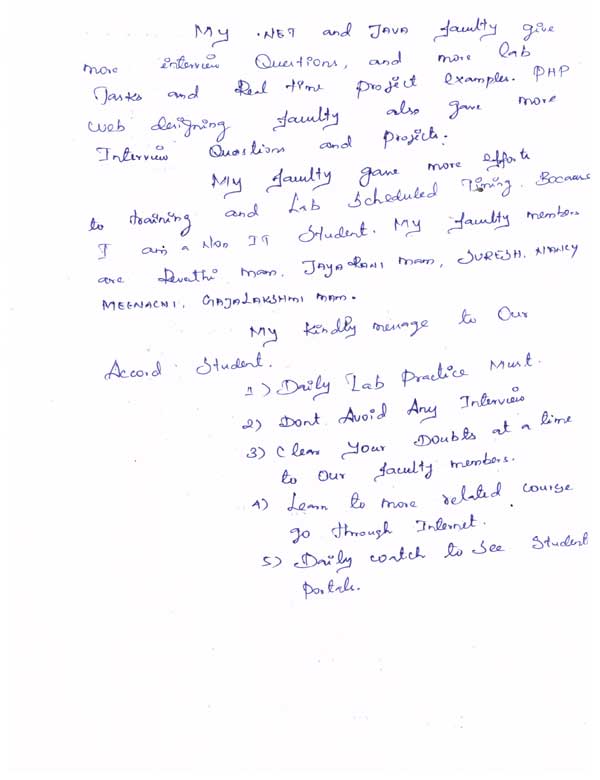 My .NET and JAVA faulty give
more interview Questions, and more lab
Tasks and Real time project examples. PHP
web designing faulty also gave more
Interview Questions and Projects.
My faulty gave more efforts
to training and Lab Scheduled Timing. Because
I am a Non IT Student. My faulty members
are Revathi mam, JAYA RANI mam, SURESH, NANCY
MEENACHI, GAJALAKSHMI mam.
My Kindly message to Our
Accord Student.
1) Daily Lab Practice Must.
2) Dont Avoid Any Interview
3) Clear Your Doubts at a time
to Our faulty members.
4) Learn to more related course
go through Internet.
5) Daily watch to See Student
Portals.